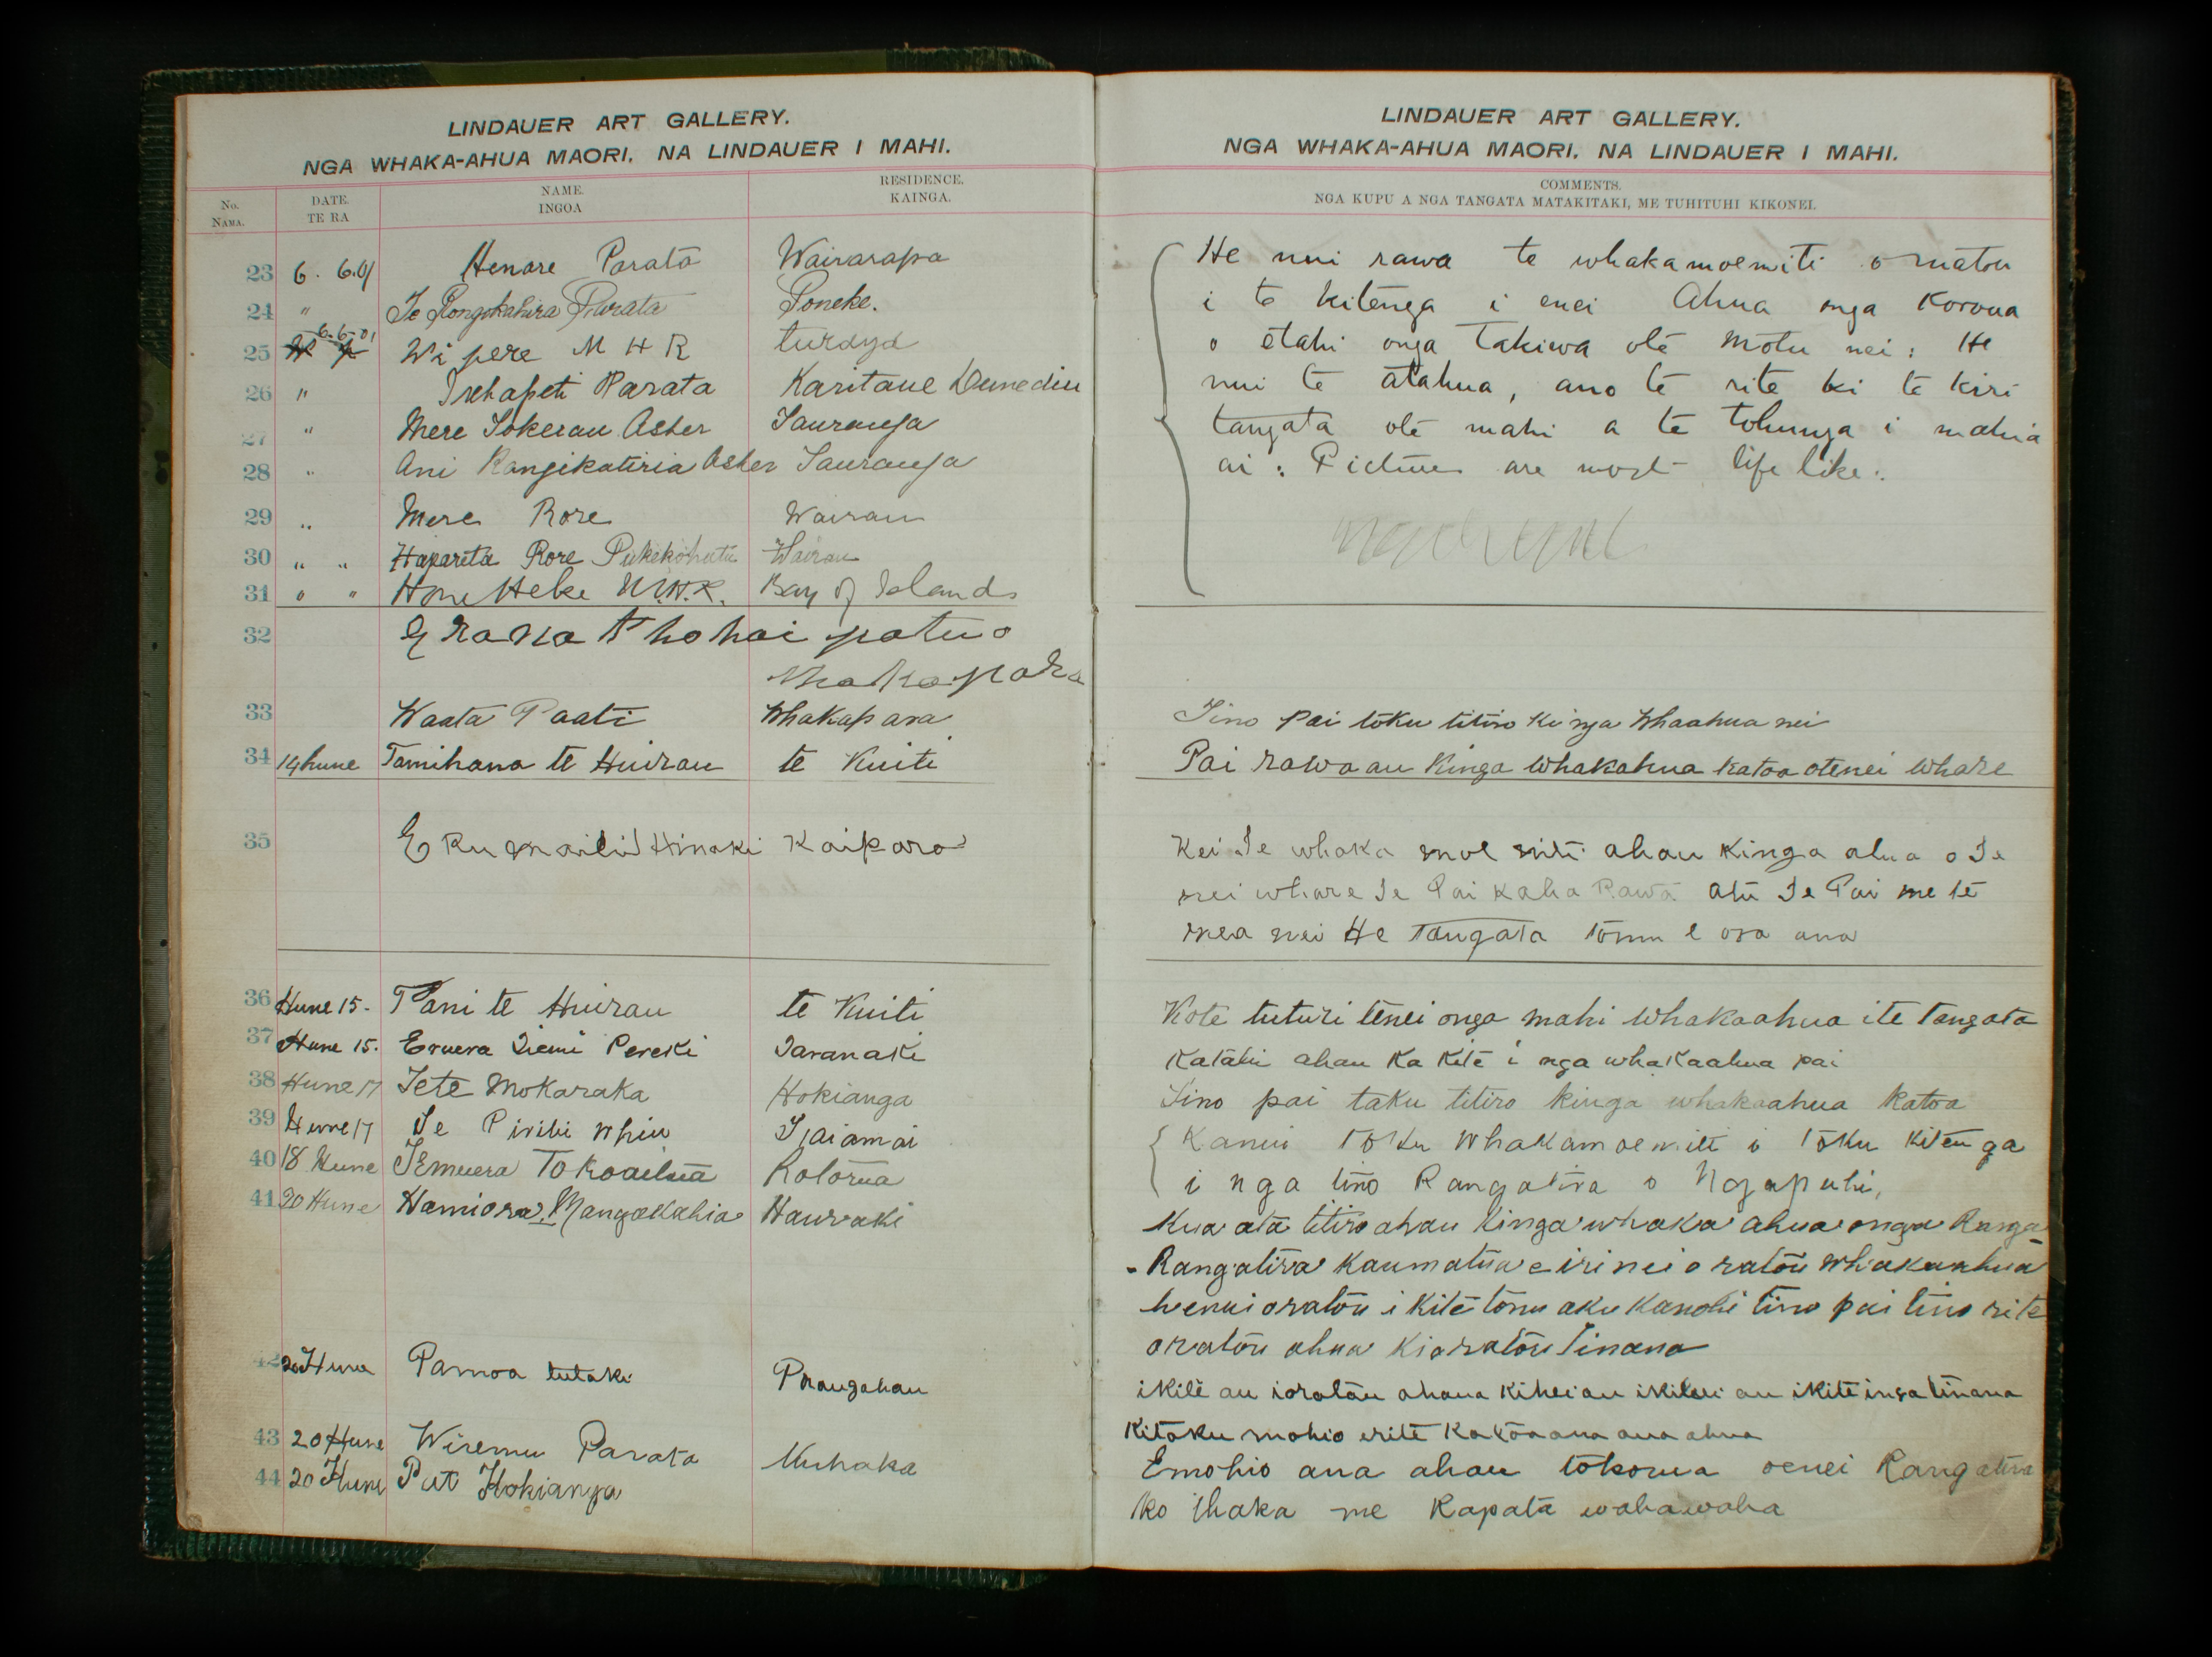 LINDAUER ART GALLERY.
NGA WHAKA-AHUA MAORI. NA LINDAUER I MAHI.
No. NAMA. DATE. TE RA NAME. INGOA RESIDENCE. KAINGA.
23 6. 6.01 Henare Parata Wairarapa
24 " Te Rongokahira Parata Poneke.
25 6-6-01 Wi pere M H R
26 " Irehapeti Parata Karitane Dunedin
27 " Mere Tokerau Asher Tauranga
28 " Ani Rangikatiria Asher Tauranga
29 " Mere Rore Wairau
30 " " Hapareta Rore Pukekohatu Wairau
31 " " Hone Heke M.H.R. Bay of Islands
32
33 Waata Paati Whakapara
34 14 hune Tamihana te Huirau te Kuiti
35 Hinaki Kaipara
36 Hune 15. Pani te Huirau te Kuiti
37 Hune 15. Eruera Tiemi Pereki Taranaki
38 Hune 17 Tete Mokaraka Hokianga
39 Hune 17 Te Pirihi Whiu Taiamai
40 18 Hune Temuera Tokoaitua Rotorua
41 20 Hune Hamiora Mangakahia Hauraki
42 20 Hune Pamoa tutaki Porangahau
43 20 Hune Wiremu Parata Nuhaka
44 20 Hune Put Hokianga
LINDAUER ART GALLERY.
NGA WHAKA-AHUA MAORI. NA LINDAUER I MAHI.
COMMENTS.
NGA KUPU A NGA TANGATA MATAKITAKI, ME TUHITUHI KIKONEI.
He nui rawa te whakamoemiti o matou
i te kitenga i enei Ahua onga Koroua
o etahi onga Takiwa ote Motu nei: He
nui te atahua, ano te rite ki te kiri
tangata ote mahi a te tohunga i mahia
ai: Pictures are most life like.
Tino pai toku titiro ki nga Whaahua nei
Pai rawa au Kinga Whakahua katoa otenei whare
Kei Te whaka moe miti ahau Kinga ahua o Te
nei whare Te Pai Kaha Rawa atu Te Pai me te
mea nei He Tangata tonu e ora ana
Kote tuturi tenei onga mahi Whakaahua ite Tangata
Katahi ahau Ka Kite i nga whaKaahua pai
Tino pai taku titiro kinga whakaahua katoa
Kanui toku whakamoemiti i toku kitenga
i nga tino Rangatira o Ngapuhi,
Kua ata titiro ahau Kinga whaka ahua onga Ranga
- Rangatira Kaumatua e iri nei o ratou whakaahua
henui oratou i Kite tonu aku Kanohi tino pai tino rite
oratou ahua Kioratou Tinana
ikite au ioratou ahaua au ikite inga tinana
Kitaku mohio erite
Emohio ana ahau tokorua oenei Rangatira
ko ihaka me Rapata wahawaha